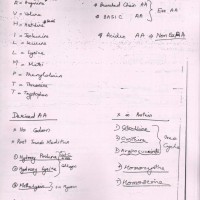 R = Arginine
V = Valine
H = Histidine
I = Isoleucine
L = Leucine
L = Lysine
M = Meth
P = Phenylalanin
T = Threonine
T = Tryptophan
* Branched Chain AA
* BASIC AA
Ess AA
* Acidic AA → Non Ess AA
Derived AA
* No Codons
* Post Trans Modific
① Hydroxy Proline
② Hydroxy Lysine
Collagen
③ Methyl lysine
Myosin
1) Ornithine
2) Citrulline
3) Arginosuccinate
Urea Cycle
4) Homocysteine
5) Homoserine